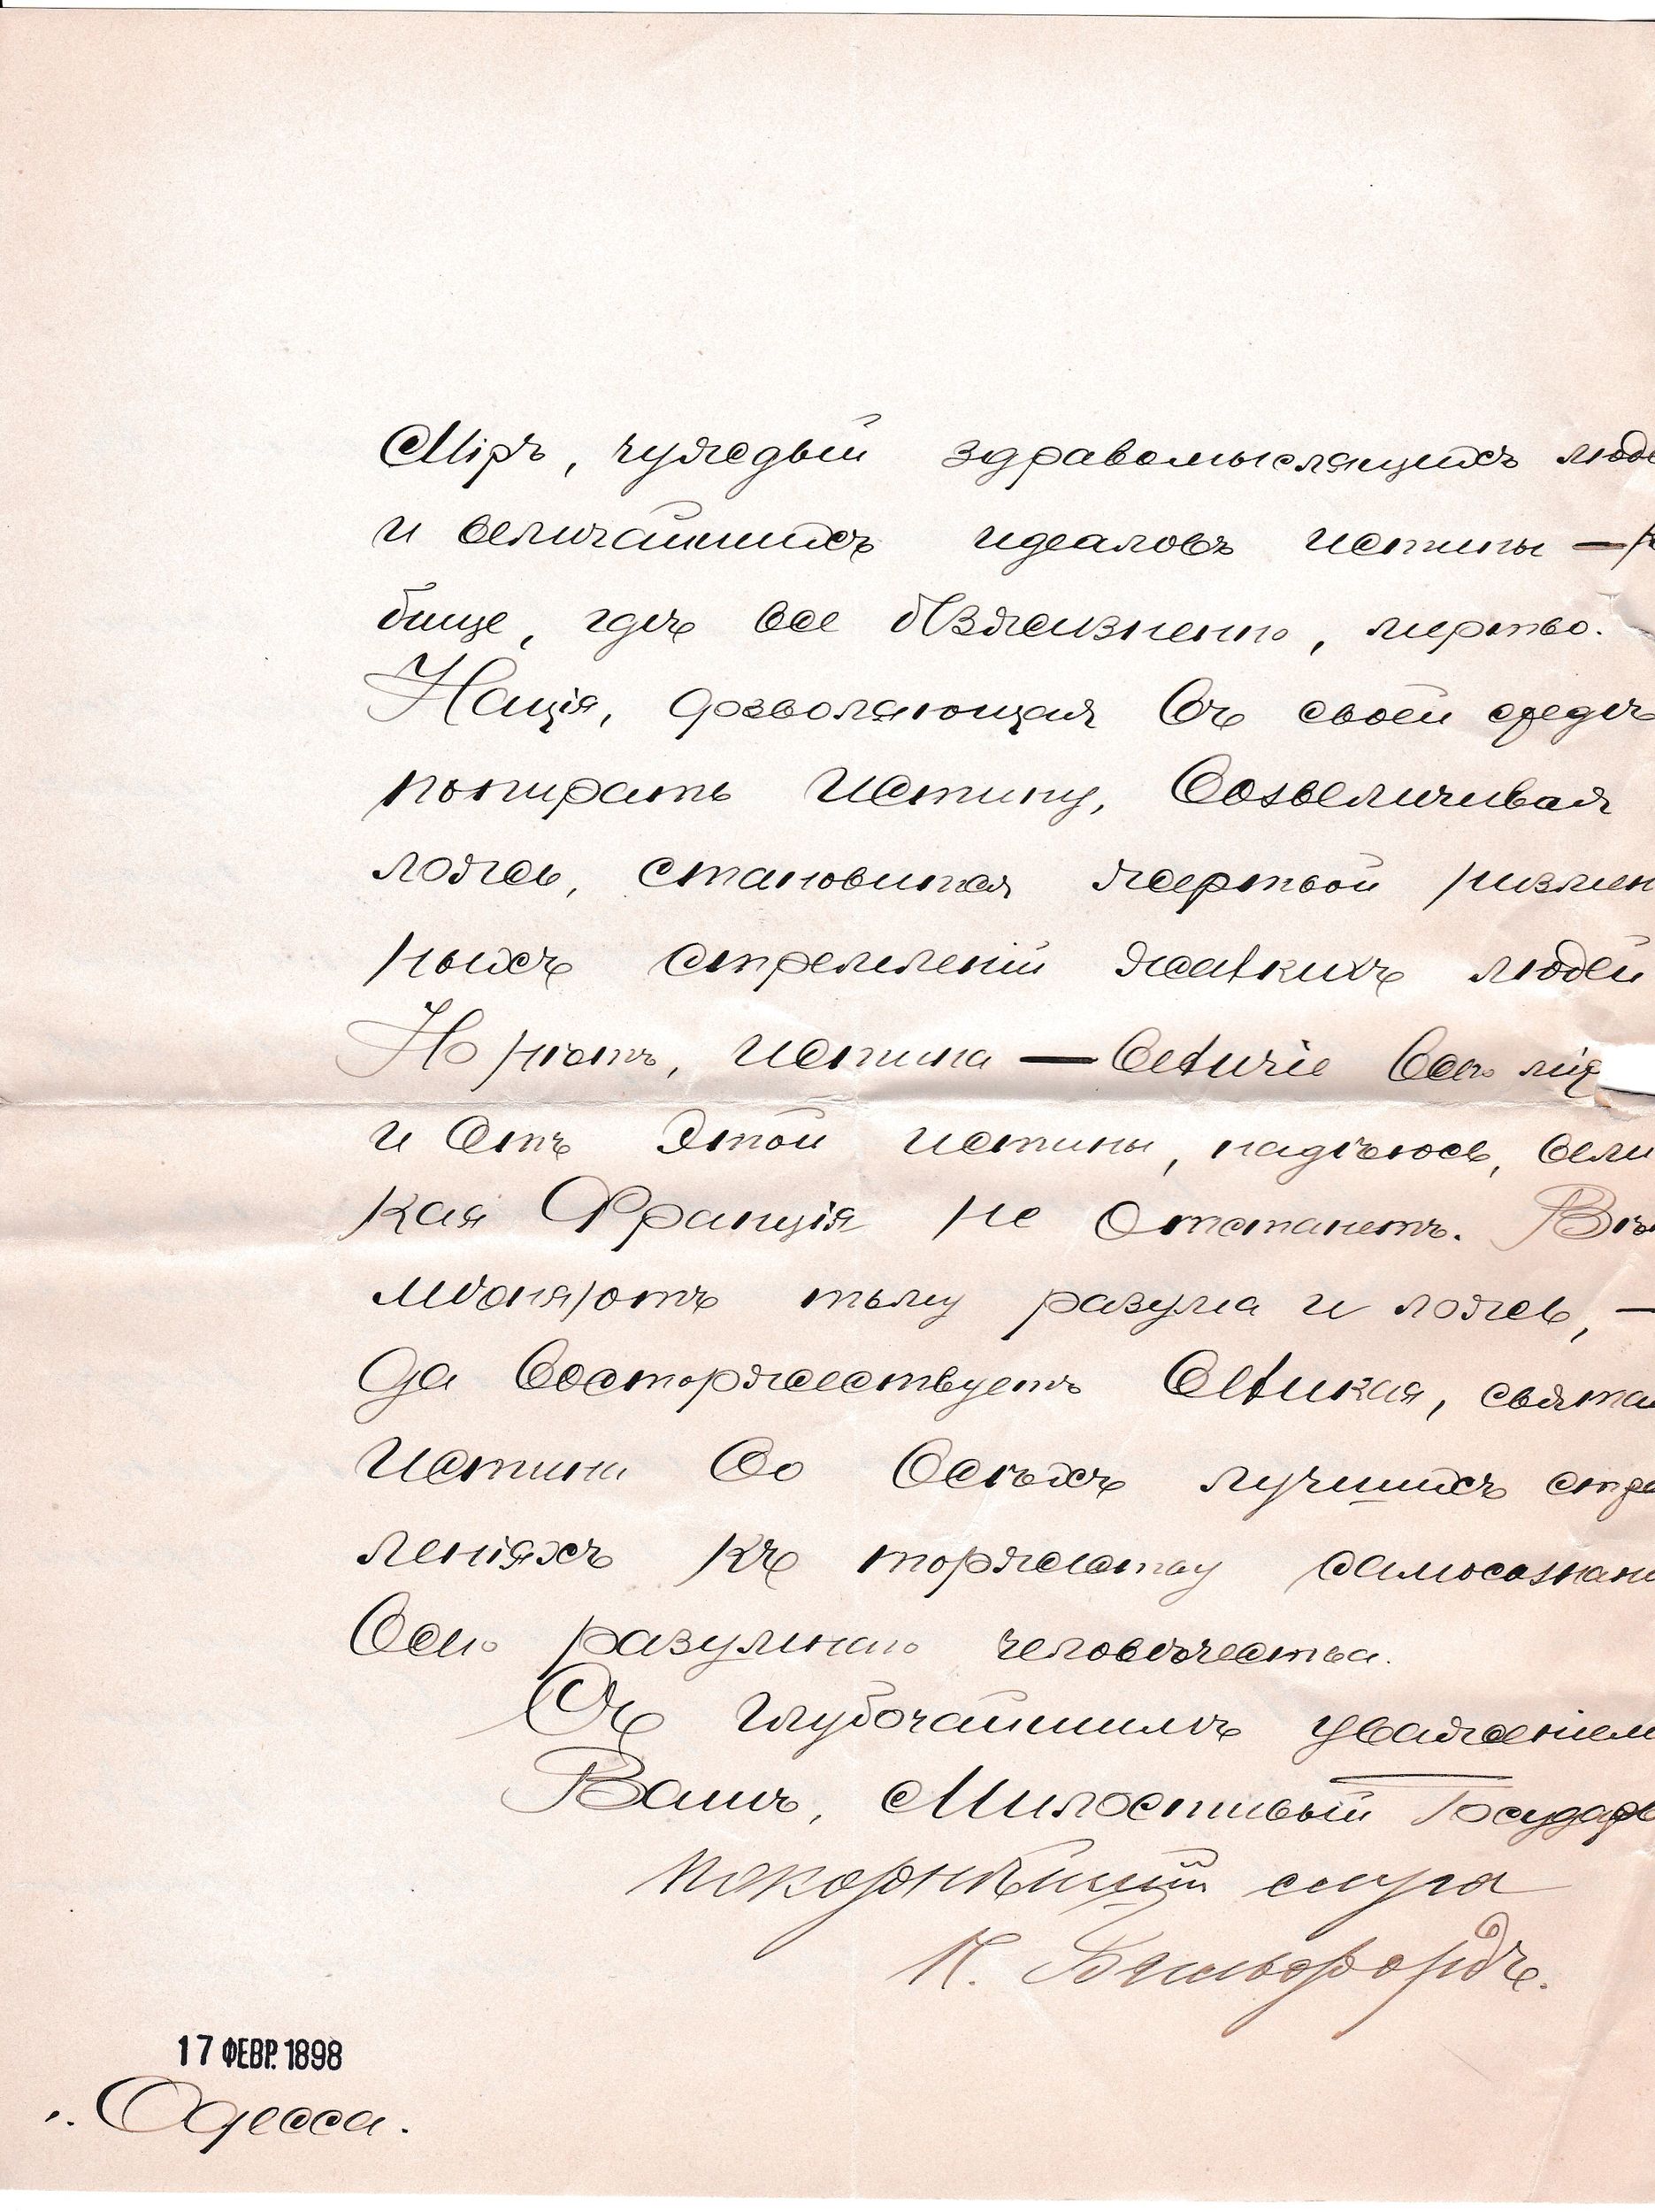 Міръ, чуждый здравомыслящихъ люде
и величайшихъ идеаловъ истины —
бище, гдѣ все безжизненно, мертво.
Нація, дозволяющая въ своей средѣ
попирать истину, возвеличивая
ложь, становится жертвой низмен
ныхъ стремленій жалкихъ людей
Но нѣтъ, истина — величіе всего мір
и отъ этой истины, надѣюсь, вели
кая Франція не отстанетъ.
тьму разума и ложь, —
да восторжествуетъ великая, святая
истина во всѣхъ лучшихъ стре
леніяхъ къ торжеству самосознані
всего разумнаго человѣчества.
Съ глубочайшимъ уваженіем
Вашъ, Милостивый Государь
покорнѣйшій слуга
17 ФЕВР. 1898
г. Одесса.